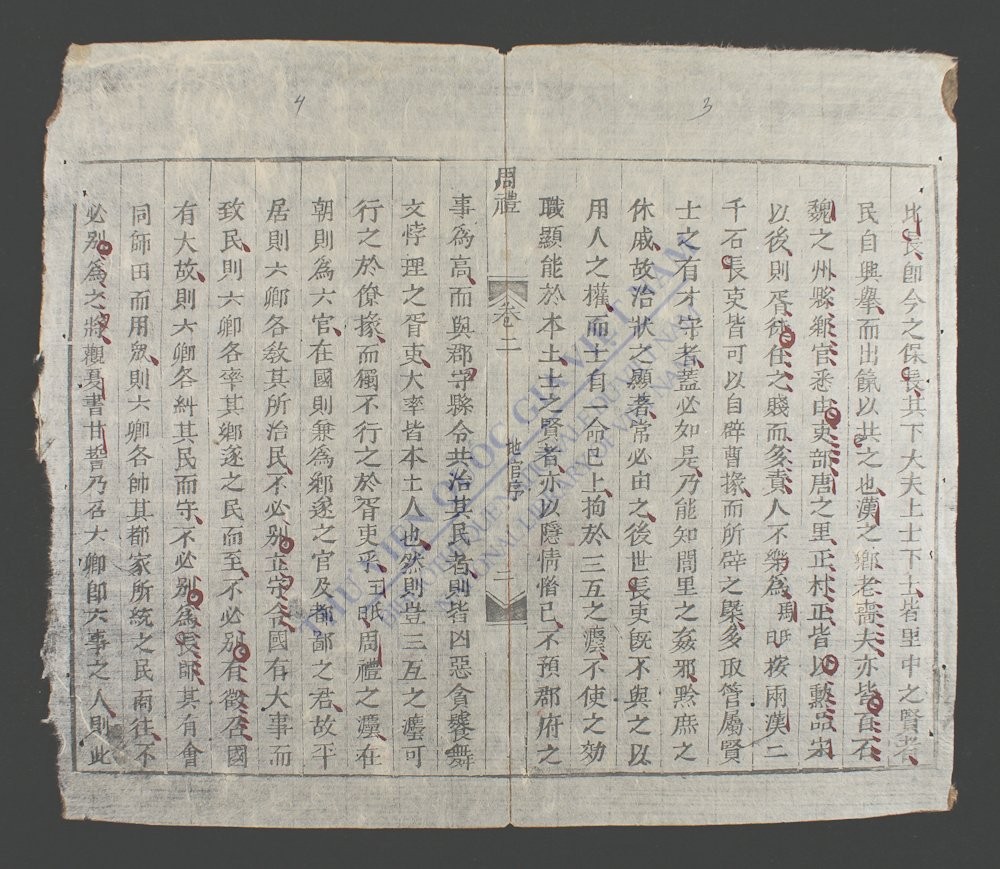 3
比長卽今之保長其下大夫上士下士皆里中之賢者
民自興舉而出餼以共之也漢之鄉老嗇夫亦皆百石
魏之州縣鄉官悉由吏部唐之里正村正皆以勲品宗
以後則胥徒任之賤而多責人不樂為周氏按兩漢二
千石長吏皆可以自辟曹掾而所辟之槩多取管屬賢
士之有才守者蓋必如是乃能知閭里之姦邪黔庶之
休戚故治狀之顯著常必由之後世長吏旣不與之以
用人之權而士自一命已上拘於三互之灋不使之効
職顯能於本土士之賢者亦以隱情惜已不預郡府之
周禮 卷二 地官序 二
4
事為高而與郡守縣令共治其民者則皆凶惡貪饕舞
文悖理之胥吏大率皆本土人也然則豈三互之灋可
行之於僚掾而獨不行之於胥吏乎王氏周禮之灋在
朝則為六官在國則兼為鄉遂之官及都鄙之君故平
居則六卿各敎其所治民不必别立守令國有大事而
致民則六卿各率其鄉遂之民而至不必别有徵召國
有大故則六卿各糾其民而守不必别為長師其有會
同師田而用眾則六卿各帥其都家所統之民而往不
必别為之將觀夏書甘誓乃召六卿卽六事之人則此
THƯ VIỆN QUỐC GIA VIỆT NAM
BIBLIOTHÈQUE NATIONALE DU VIETNAM
NATIONAL LIBRARY OF VIETNAM